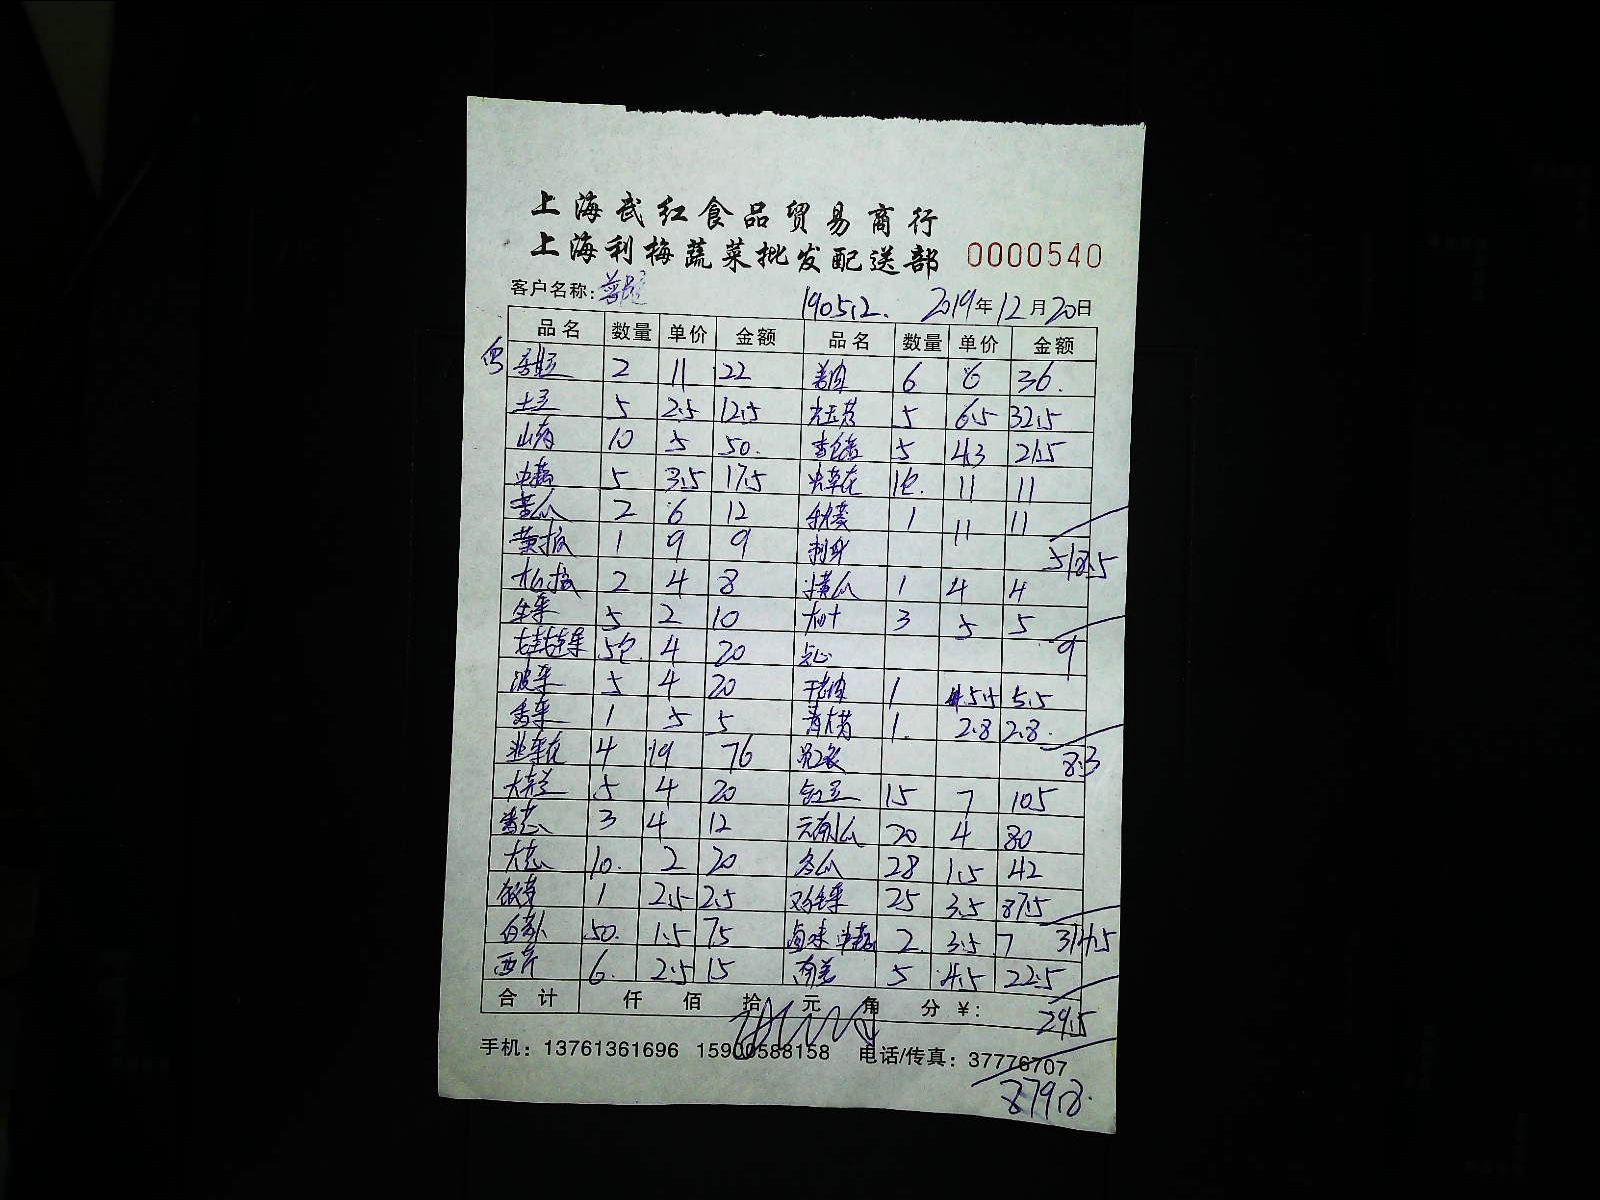 上海武红食品贸易商行
上海利梅蔬菜批发配送部 0000540
客户名称: 190512. 2019年12月20日
品名 数量 单价 金额 品名 数量 单价 金额
2 11 22 6 6 36.
土豆 5 2.5 12.5 5 6.5 32.5
山药 10 5 50. 5 4.3 21.5
5 3.5 17.5 虫草花 1包. 11 11
苦瓜 2 6 12 秋葵 1 11 11
黄椒 1 9 9 刺身 518.5
2 4 8 黄瓜 1 4 4
生菜 5 2 10 3 5 5
娃娃菜 5包. 4 20 点心 9
菠菜 5 4 20 1 5.5 5.5
香菜 1 5 5 1. 2.8 2.8.
韭菜花 4 19 76 8.3
5 4 20 15 7 105
香葱 3 4 12 南瓜 20 4 80
大葱 10. 2 20 冬瓜 28 1.5 42
银芽 1 2.5 2.5 25 3.5 87.5
白萝卜 50. 1.5 75 卤味 2 3.5 7 314.5
西芹 6. 2.5 15 5 4.5 22.5
合计 仟 佰 拾 元 角 分 ¥: 29.5
手机: 13761361696 15900588158 电话/传真: 37776707
879.8.